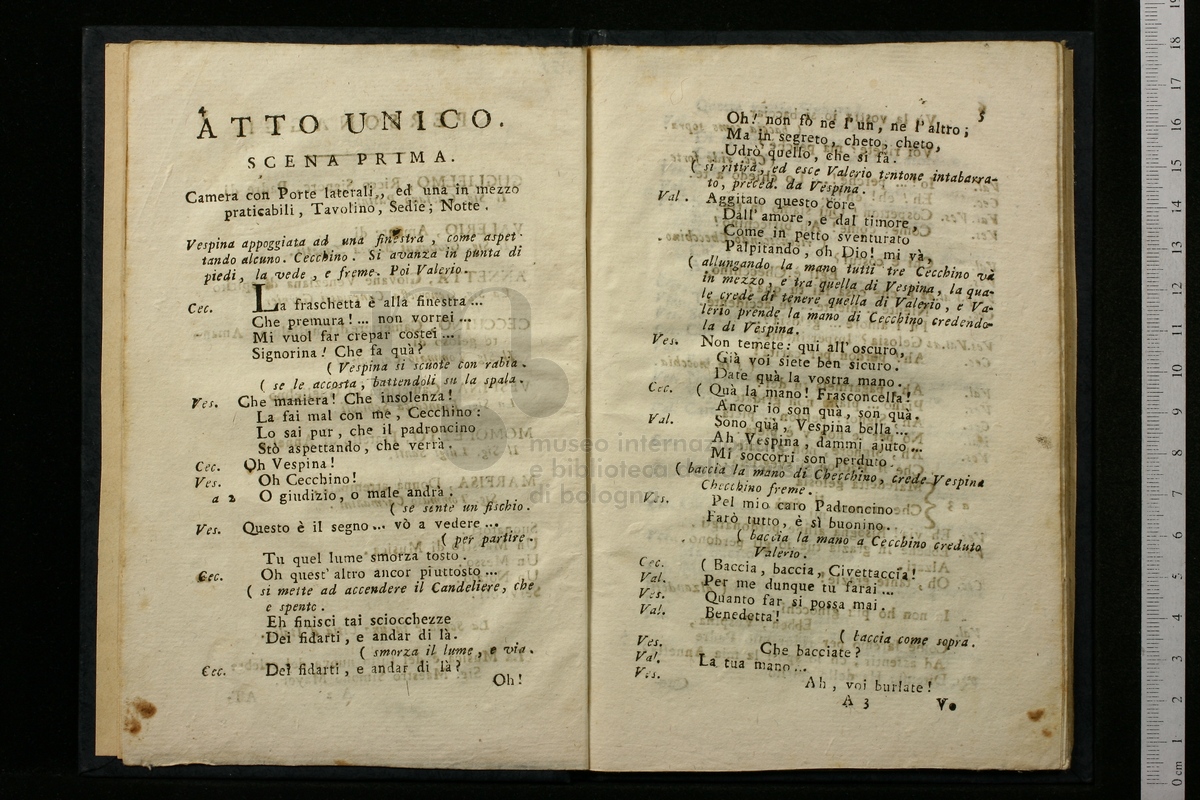 4
ATTO UNICO.
SCENA PRIMA.
Camera con Porte laterali,, ed una in mezzo
praticabili, Tavolino, Sedie; Notte.
Vespina appoggiata ad una finestra, come aspet-
tando alcuno. Cecchino. Si avanza in punta di
piedi, la vede, e freme. Poi Valerio.
Cec. La fraschetta è alla finestra ...
Che premura! ... non vorrei ...
Mi vuol far crepar costei ...
Signorina! Che fa quà?
( Vespina si scuote con rabia.
( se le accosta, battendoli su la spala.
Ves. Che maniera! Che insolenza!
La fai mal con me, Cecchino:
Lo sai pur, che il padroncino
Stò aspettando, che verrà.
Cec. Oh Vespina!
Ves. Oh Cecchino!
a 2 O giudizio, o male andrà.
( se sente un fischio.
Ves. Questo è il segno ... vò a vedere ...
( per partire.
Tu quel lume smorza tosto.
Cec. Oh quest' altro ancor piuttosto ...
( si mette ad accendere il Candeliere, che
e spento.
Eh finisci tai sciocchezze
Dei fidarti, e andar di là.
( smorza il lume, e via.
Cec. Dei fidarti, e andar di là?
Oh!
5
Oh! non fò ne l'un, ne l'altro;
Ma in segreto, cheto, cheto,
Udrò quello, che si fà.
( si ritira, ed esce Valerio tentone intabarra-
to, preced. da Vespina.
Val. Aggitato questo core
Dall' amore, e dal timore,
Come in petto sventurato
Palpitando, oh Dio! mi và,
( allungando la mano tutti tre Cecchino và
in mezzo, e tra quella di Vespina, la qua-
le crede di tenere quella di Valerio, e Va-
lerio prende la mano di Cecchino credendo-
la di Vespina.
Ves. Non temete: qui all' oscuro,
Già voi siete ben sicuro.
Date quà la vostra mano.
Cec. ( Quà la mano! Frasconcella!
Ancor io son quà, son quà.
Val. Sono quà, Vespina bella ...
Ah Vespina, dammi ajuto ...
Mi soccorri son perduto.
( baccia la mano di Checchino, crede Vespina
Checchino freme.
Ves. Pel mio caro Padroncino
Farò tutto, è sì buonino.
( baccia la mano a Cecchino creduto
Valerio.
Cec. ( Baccia, baccia, Civettaccia!
Val. Per me dunque tu farai ...
Ves. Quanto far si possa mai.
Val. Benedetta!
( baccia come sopra.
Ves. Che bacciate?
Val. La tua mano ...
Ves. Ah, voi burlate!
A 3 V.
museo internaz
e biblioteca d
di bologn